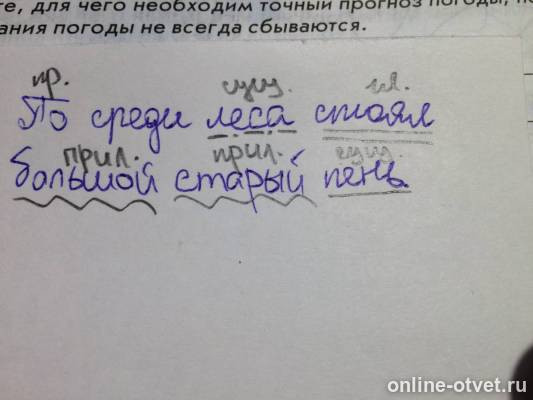 те, для чего необходим точный прогноз погоды,
ания погоды не всегда сбываются.
пр. сущ. гл.
По среди леса стоял
прил. прил. сущ.
большой старый пень
online-otvet.ru